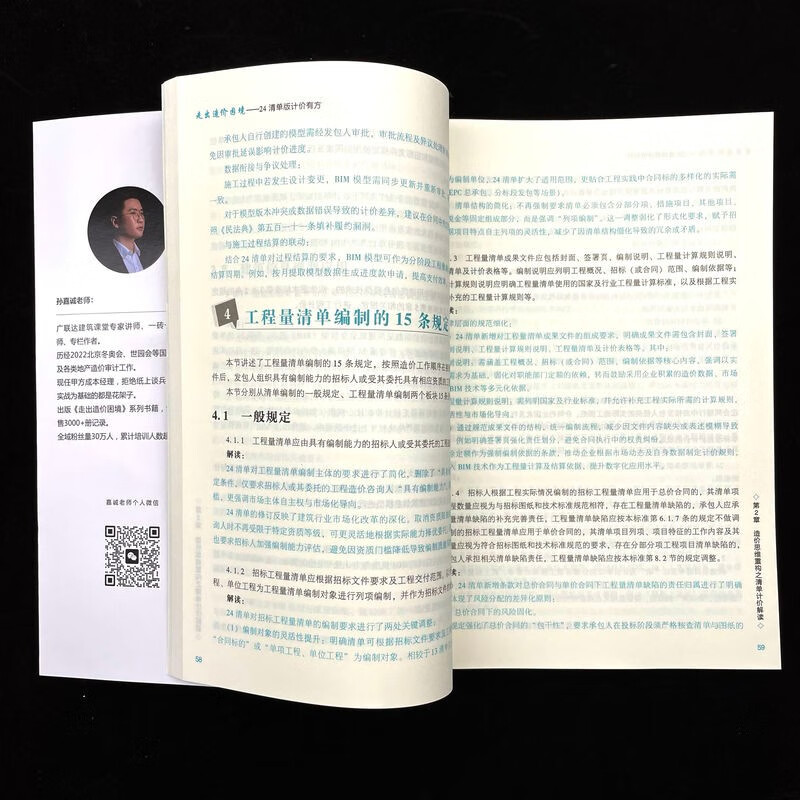 孙嘉诚老师：
广联达建筑课堂专家讲师，一砖
师、专栏作者。
历经2022北京冬奥会、世园会等国
及各类地产造价审计工作。
现任甲方成本经理，拒绝纸上谈兵
实战为基础的都是花架子。
出版《走出造价困境》系列书籍，
售3000+册记录。
全域粉丝量30万人，累计培训人数超
嘉诚老师个人微信
走出造价困境——24 清单版计价有方
承包人自行创建的模型需经发包人审批，审批流程及异议处理
免因审批延误影响计价进度。
数据衔接与争议处理：
施工过程中若发生设计变更，BIM 模型需同步更新并重新
一致。
对于模型版本冲突或数据错误导致的计价差异，建议在合同中
照《民法典》第五百一十一条填补履约漏洞。
与施工过程结算的联动：
结合 24 清单对过程结算的要求，BIM 模型可作为分阶段工程
结算周期。例如，按月提取模型数据生成进度款申请，提高支付效率
4 工程量清单编制的 15 条规定
本节讲述了工程量清单编制的 15 条规定，按照造价工作顺序在
件后，发包人组织具有编制能力的招标人或受其委托具有相应资质的工
本节分别从清单编制的一般规定、工程量清单编制两个板块 15 条
4.1 一般规定
4.1.1 工程量清单应由具有编制能力的招标人或受其委托的工程
解读：
24 清单对工程量清单编制主体的要求进行了简化，删除了“具
定条件，仅要求招标人或其委托的工程造价咨询人“具有编制能力”
槛，更强调市场主体自主权与市场化导向。
24 清单的修订反映了建筑行业市场化改革的深化，取消资质
询人时不再受限于特定资质等级，可更灵活地根据实际能力择优委托
也要求招标人加强编制能力评估，避免因资质门槛降低导致编制质量
4.1.2 招标工程量清单应根据招标文件要求及工程交付范围，以
程、单位工程为工程量清单编制对象进行列项编制，并作为招标文件
解读：
24 清单对招标工程量清单编制的要求进行了两处关键调整：
（1）编制对象的灵活性提升：明确清单可根据招标文件要求及工
“合同标的”或“单项工程、单位工程”为编制对象。相较于 13 清单
58
为编制单位，24 清单扩大了适用范围，更贴合工程实践中合同标的多样化的实际需
EPC 总承包、分标段发包等场景）。
清单结构的简化：不再强制要求清单必须包含分部分项、措施项目、其他项目、
税金等固定组成部分，而是强调“列项编制”。这一调整弱化了形式化要求，赋予招
据项目特点自主列项的灵活性，减少了因清单结构僵化导致的冗余或矛盾。
.3 工程量清单成果文件应包括封面、签署页、编制说明、工程量计算规则说明、
清单及计价表格等。编制说明应列明工程概况、招标（或合同）范围、编制依据等；
则说明应明确工程量清单使用的国家及行业工程量计算标准，以及根据工程实
补充的工程量计算规则等。
：
层面的规范细化：
24 清单新增对工程量清单成果文件的组成要求，明确成果文件需包含封面、签署
说明、工程量计算规则说明、工程量清单及计价表格等。其中：
说明：需涵盖工程概况、招标（或合同）范围、编制依据等核心内容，强调以实
需求为基础，弱化对职能部门定额的依赖，转而鼓励采用企业积累的造价数据、市场
BIM 技术等多元化依据。
程量计算规则说明：需列明国家及行业标准，并允许补充工程实际所需的计算规则，
活性与市场化导向。
通过规范成果文件的结构，统一编制流程，减少因文件内容缺失或表述模糊导致
例如明确签署页强化责任划分，避免合同执行中的权责纠纷。
除定额作为强制编制依据的条款，推动企业根据市场动态及自身数据制定计价规则，
入 BIM 技术作为工程量计算及结算依据，提升数字化应用水平。
.4 招标人根据工程实际情况编制的招标工程量清单应用于总价合同的，其清单项
程数量应视为与招标图纸和技术标准规范相符，存在工程量清单缺陷的，承包人应承
量清单缺陷的补充完善责任，工程量清单缺陷应按本标准第 6.1.7 条的规定不做调
制的招标工程量清单应用于单价合同的，其清单项目列项、项目特征的工作内容及其
量应视为符合招标图纸和技术标准规范的要求，存在分部分项工程项目清单缺陷的，
包人承担相关清单缺陷责任，工程量清单缺陷应按本标准第 8.2 节的规定调整。
：
24 清单新增条款对总价合同与单价合同下工程量清单缺陷的责任归属进行了明确
体现了风险分配的差异化原则：
总价合同下的风险固化。
规定强化了总价合同的“包干性”，要求承包人在投标阶段须严格核查清单与图纸的
第 2 章 造价思维重构之清单计价解读
59